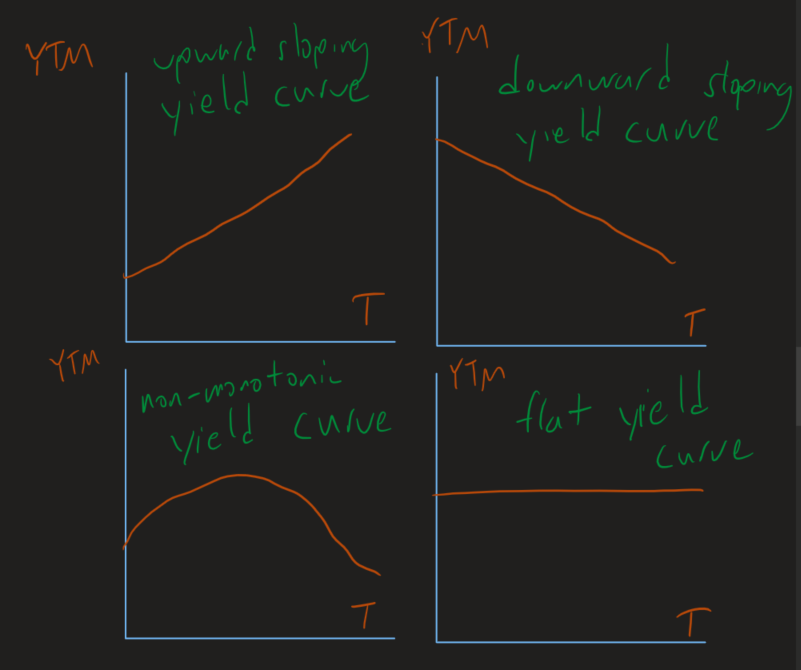 YTM
upward sloping
yield curve
T
YTM
downward sloping
yield curve
T
YTM
non-monotonic
yield curve
T
YTM
flat yield
curve
T